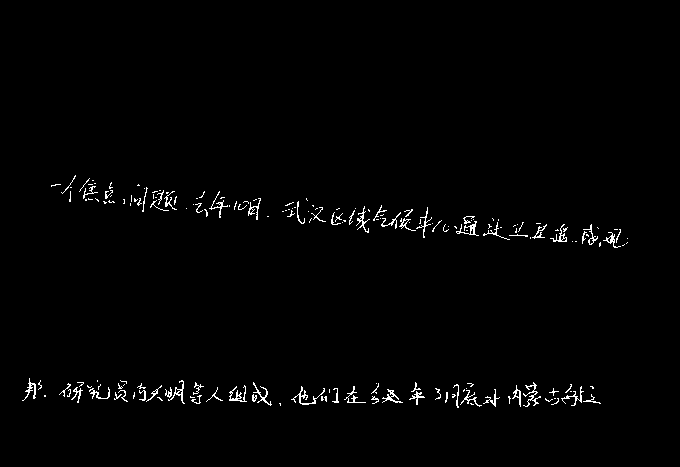 一个焦点问题.去年10月.武汉区域气候中心通过卫星遥感观
邦.研究员 明等人组成,他们在 年 月底对内蒙古